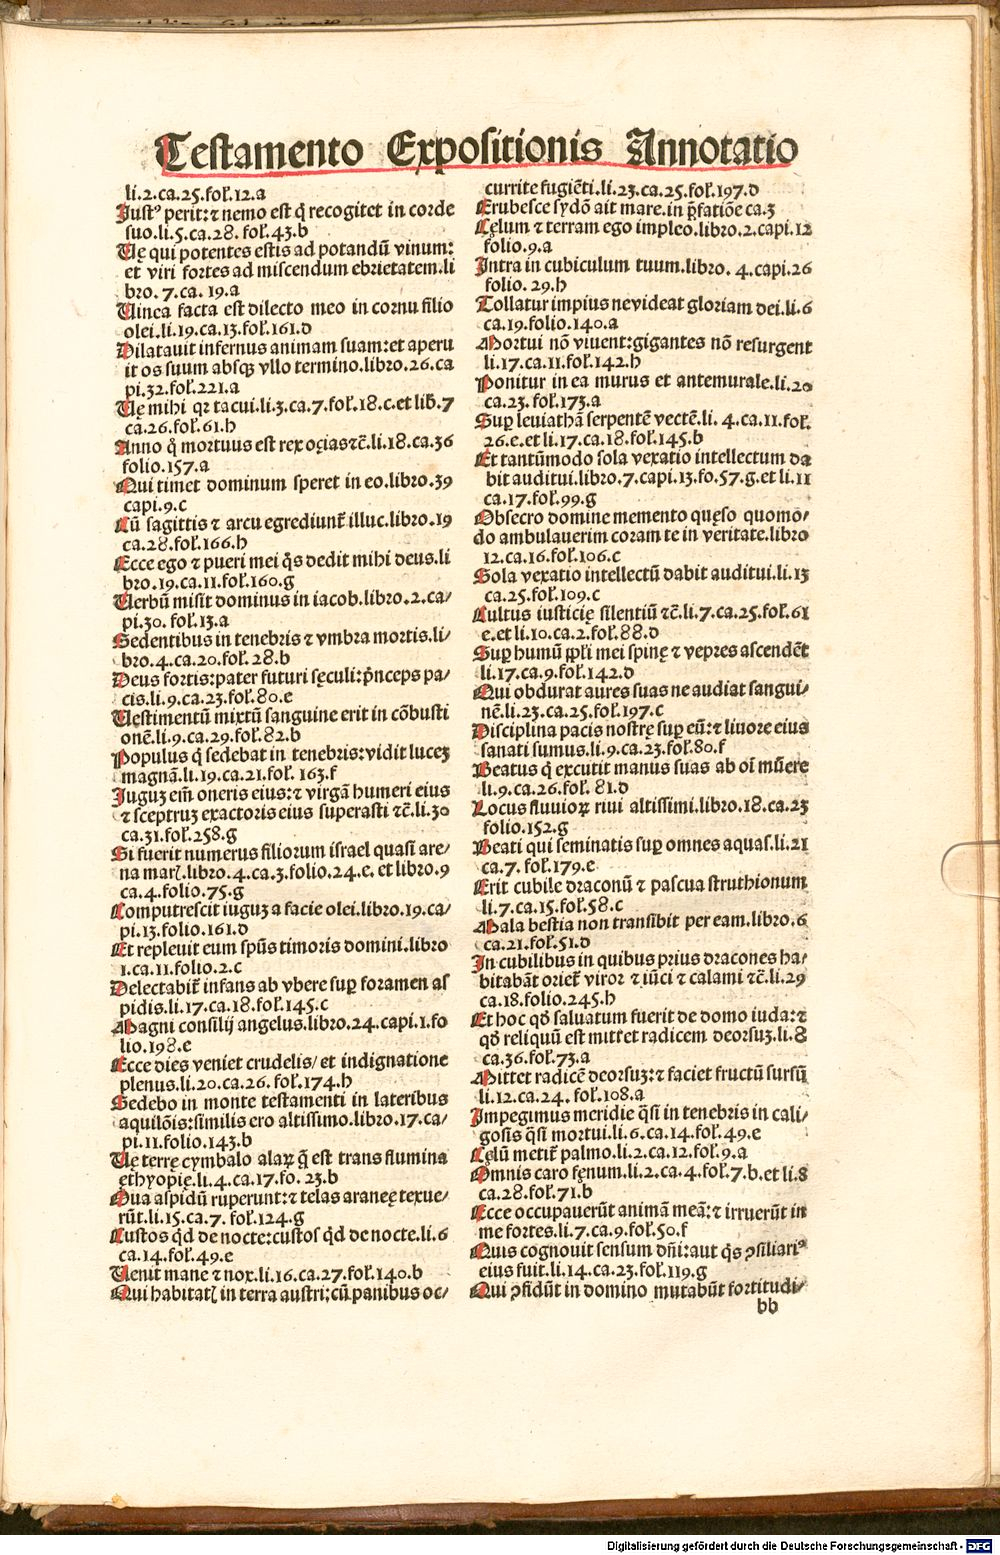 Testamento Expositionis Annotatio
li.2.ca.25.foł.12.a
Justꝰ perit:⁊ nemo est q̄ recogitet in corde
suo.li.5.ca.28. foł.43.b
Ue̜ qui potentes estis ad potandū vinum:
et viri fortes ad miscendum ebrietatem.li
bro. 7.ca. 19.a
Uinea facta est dilecto meo in cornu filio
olei.li.19.ca.13.foł.161.d
Dilatauit infernus animam suam:et aperu
it os suum absqꝫ vllo termino.libro.26.ca
pi.32.foł.221.a
Ue̜ mihi qꝛ tacui.li.3.ca.7.foł.18.c.et lib̄.7
ca.26.foł.61.h
Anno q̄ mortuus est rex oçias⁊c̄.li.18.ca.36
folio.157.a
Qui timet dominum speret in eo.libro.39
capi.9.c
Cū sagittis ⁊ arcu egrediunt̄ illuc.libro.19
ca.28.foł.166.h
Ecce ego ⁊ pueri mei q̄s dedit mihi deus.li
bro.19.ca.11.foł.160.g
Uerbū misit dominus in iacob.libro.2.ca/
pi.30. foł.13.a
Sedentibus in tenebris ⁊ vmbra mortis.li/
bro.4.ca.20.foł.28.b
Deus fortis:pater futuri se̜culi:p̄nceps pa/
cis.li.9.ca.23.foł.80.e
Uestimentū mixtū sanguine erit in cōbusti
onē.li.9.ca.29.foł.82.b
Populus q̄ sedebat in tenebris:vidit luceꝫ
magnā.li.19.ca.21.foł. 163.f
Juguꝫ em̄ oneris eius:⁊ virgā humeri eius
⁊ sceptruꝫ exactoris eius superasti ⁊c̄.li.30
ca.31.foł.258.g
Si fuerit numerus filiorum israel quasi are/
na marꝭ.libro.4.ca.3.folio.24.e. et libro.9
ca.4.folio.75.g
Computrescit iuguꝫ a facie olei.libro.19.ca/
pi.13.folio.161.d
Et repleuit eum spūs timoris domini.libro
1.ca.11.folio.2.c
Delectabit̄ infans ab vbere sup̲ foramen as
pidis.li.17.ca.18.foł.145.c
Magni consilij angelus.libro.24.capi.1.fo
lio.198.e
Ecce dies veniet crudelis/ et indignatione
plenus.li.20.ca.26. foł.174.h
Sedebo in monte testamenti in lateribus
aquilōis:similis ero altissimo.libro.17.ca/
pi.11.folio.143.b
Ue̜ terre̜ cymbalo alaꝝ q̄ est trans flumina
ethyopie̜.li.4.ca.17.fo. 23.b
Oua aspidū ruperunt:⁊ telas aranee̜ texue/
rūt.li.15.ca.7. foł.124.g
Custos q̄d de nocte:custos q̄d de nocte.li.6
ca.14.foł.49.e
Uenit mane ⁊ nox.li.16.ca.27.foł.140.b
Qui habitatꝭ in terra austri:cū panibus oc/
currite fugiēti.li.23.ca.25.foł.197.d
Erubesce sydō ait mare.in p̄fatiōe ca.3
Ce̜lum ⁊ terram ego impleo.libro.2.capi.12
folio.9.a
Intra in cubiculum tuum.libro. 4.capi.26
folio. 29.h
Tollatur impius ne videat gloriam dei.li.6
ca.19.folio.140.a
Mortui nō viuent:gigantes nō resurgent
li.17.ca.11.foł.142.h
Ponitur in ea murus et antemurale.li.20
ca.23. foł.173.a
Sup̲ leuiathā serpentē vectē.li. 4.ca.11.foł.
26.e.et li.17.ca.18.foł.145.b
Et tantūmodo sola vexatio intellectum da
bit auditui.libro.7.capi.13.fo.57.g.et li.11
ca.17.foł.99.g
Obsecro domine memento que̜so quomo/
do ambulauerim coram te in veritate.libro
12.ca.16.foł.106.c
Sola vexatio intellectū dabit auditui.li.13
ca.25.foł.109.c
Cultus iusticie̜ silentiū ⁊c̄.li.7.ca.25.foł.61
e.et li.10.ca.2.foł.88.d
Sup̲ humū pp̄li mei spine̜ ⁊ vepres ascendēt
li.17.ca.9.foł.142.d
Qui obdurat aures suas ne audiat sangui/
nē.li.23.ca.25.foł.197.c
Disciplina pacis nostre̜ sup̲ eū:⁊ liuore eius
sanati sumus.li.9.ca.23.foł.80.f
Beatus q̄ excutit manus suas ab oī mūere
li.9.ca.26.foł. 81.d
Locus fluuioꝝ riui altissimi.libro.18.ca.23
folio.152.g
Beati qui seminatis sup̲ omnes aquas.li.21
ca.7. foł.179.e
Erit cubile draconū ⁊ pascua struthionum
li.7.ca.15.foł.58.c
Mala bestia non transibit per eam.libro.6
ca.21.foł.51.d
In cubilibus in quibus prius dracones ha/
bitabāt oriet̄ viror ⁊ iūci ⁊ calami ⁊c̄.li.29
ca.18.folio.245.h
Et hoc qđ saluatum fuerit de domo iuda:⁊
qđ reliquū est mitt̄ et radicem deorsuꝫ.li.8
ca.36.foł.73.a
Mittet radicē deorsuꝫ:⁊ faciet fructū sursū
li.12.ca.24. foł.108.a
Impegimus meridie q̄si in tenebris in cali/
gosis q̄si mortui.li.6.ca.14.foł.49.e
Ce̜lū metit̄ palmo.li.2.ca.12.foł.9.a
Omnis caro fe̜num.li.2.ca.4.foł.7.b.et li.8
ca.28.foł.71.b
Ecce occupauerūt animā meā:⁊ irruerūt in
me fortes.li.7.ca.9.foł.50.f
Quis cognouit sensum dn̄i:aut q̄s ꝯsiliariꝰ
eius fuit.li.14.ca.23.foł.119.g
Qui ꝯfidūt in domino mutabūt fortitudi/
bb
Digitalisierung gefördert durch die Deutsche Forschungsgemeinschaft - DFG